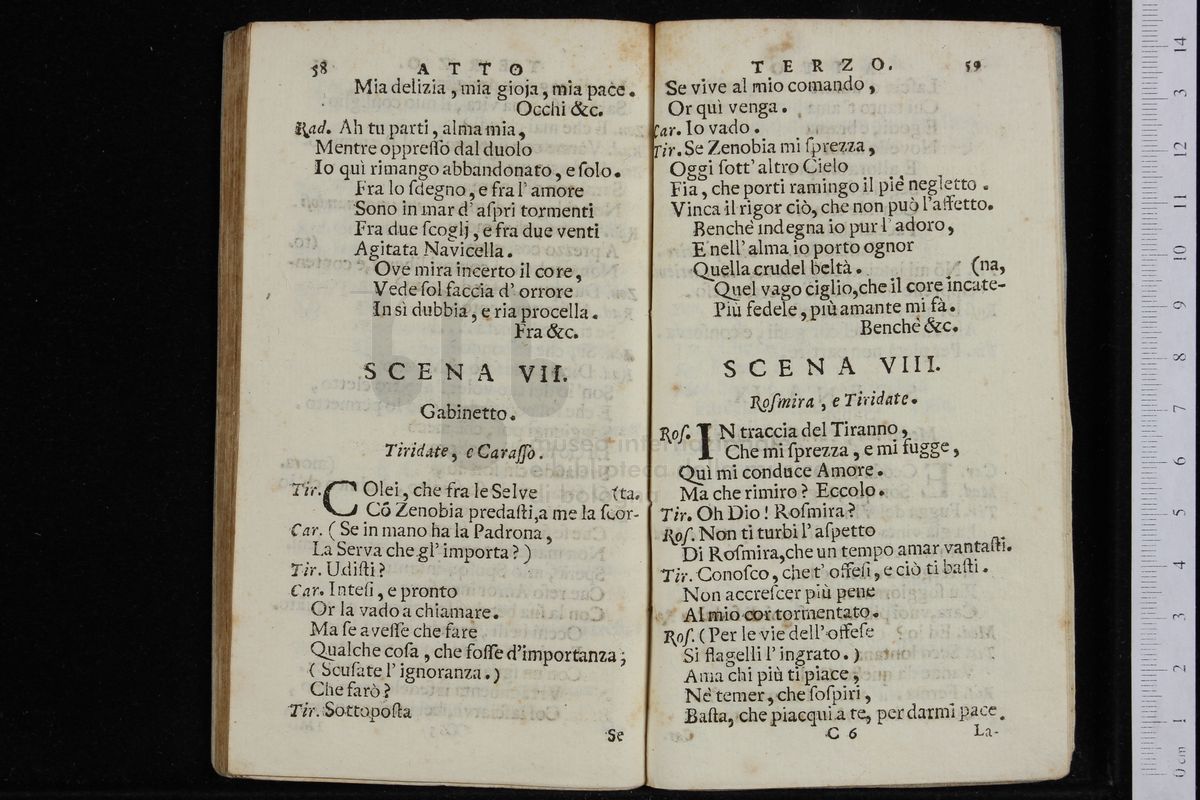 58 ATTO
Mia delizia, mia gioja, mia pace.
Occhi &c.
Rad. Ah tu parti, alma mia,
Mentre oppreſſo dal duolo
Io quì rimango abbandonato, e ſolo.
Fra lo ſdegno, e fra l' amore
Sono in mar d' aſpri tormenti
Fra due ſcoglj, e fra due venti
Agitata Navicella.
Ove mira incerto il core,
Vede ſol faccia d' orrore
In sì dubbia, e ria procella.
Fra &c.
SCENA VII.
Gabinetto.
Tiridate, e Caraſſo.
Tir. COlei, che fra le Selve (ta.
Cõ Zenobia predaſti, a me la ſcor-
Car. (Se in mano ha la Padrona,
La Serva che gl' importa?)
Tir. Udiſti?
Car. Inteſi, e pronto
Or la vado a chiamare.
Ma ſe aveſſe che fare
Qualche coſa, che foſſe d'importanza;
(Scuſate l' ignoranza.)
Che farò?
Tir. Sottopoſta
Se
TERZO. 59
Se vive al mio comando,
Or quì venga.
Car. Io vado.
Tir. Se Zenobia mi ſprezza,
Oggi ſott' altro Cielo
Fia, che porti ramingo il piè negletto.
Vinca il rigor ciò, che non può l'affetto.
Benchè indegna io pur l' adoro,
E nell' alma io porto ognor
Quella crudel beltà. (na,
Quel vago ciglio, che il core incate-
Più fedele, più amante mi fà.
Benchè &c.
SCENA VIII.
Roſmira, e Tiridate.
Roſ. IN traccia del Tiranno,
Che mi ſprezza, e mi fugge,
Quì mi conduce Amore.
Ma che rimiro? Eccolo.
Tir. Oh Dio! Roſmira?
Roſ. Non ti turbi l' aſpetto
Di Roſmira, che un tempo amar vantaſti.
Tir. Conoſco, che t' offeſi, e ciò ti baſti.
Non accreſcer più pene
Al mio cor tormentato.
Roſ. (Per le vie dell' offeſe
Si flagelli l' ingrato.)
Ama chi più ti piace,
Nè temer, che ſoſpiri,
Baſta, che piacqui a te, per darmi pace.
C 6 La-